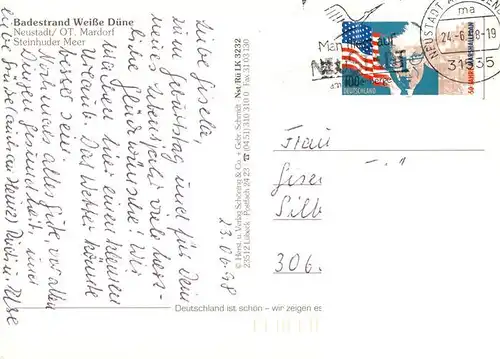 Badestrand Weiße Düne
Neustadt/ OT. Mardorf
Steinhuder Meer
Liebe Gisela,
zum Geburtstag und für Dein
neues Lebensjahr viele herz-
liche Glückwünsche! Wir
machen hier einen kleinen
Urlaub. Das Wetter könnte
besser sein.
Nochmals alles Gute, vor allem
Gesundheit, und
liebe Grüße
23.06.98
© Horst. u. Verlag Schöning & Co. + Gebr. Schmidt
23512 Lübeck · Postfach 24 23 ☎ (04 51) 310 310 0 Fax 31 03 130
Nst Rü LK 3232
NEUSTADT
ma
24.-6.98-19
31535
100
DEUTSCHLAND
50 JAHRE MARSHALLPLAN
Frau
Silb
306.
Deutschland ist schön – wir zeigen es